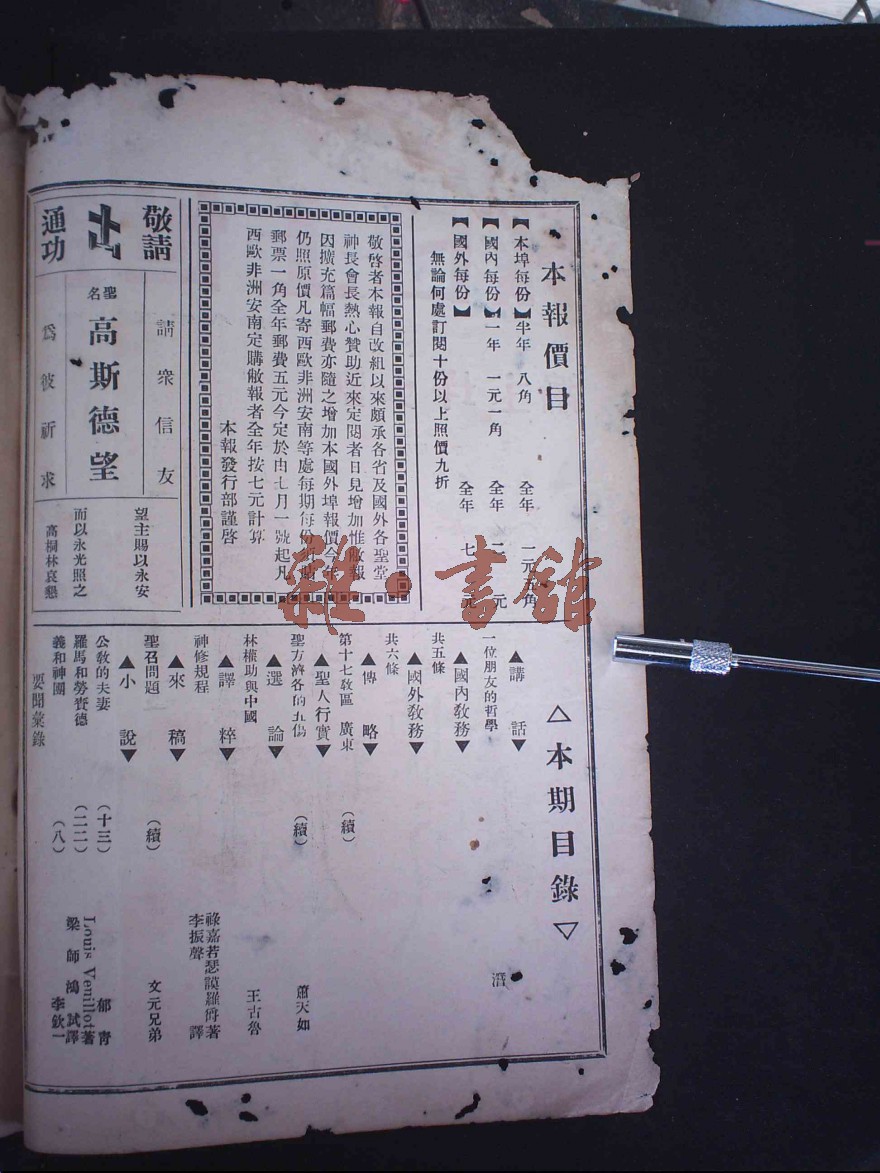 本報價目
【本埠每份】半年 八角 全年 一元六角
【國內每份】一年 一元一角 全年 二元
【國外每份】 全年 七元
無論何處訂閱十份以上照價九折
敬啓者本報自改組以來頗承各省及國外各聖堂
神長會長熱心贊助近來定閱者日見增加惟敝報
因擴充篇幅郵費亦隨之增加本國外埠報價今年
仍照原價凡寄西歐非洲安南等處每期每份須貼
郵票一角全年郵費五元今定於由七月一號起凡
西歐非洲安南定購敝報者全年按七元計算
本報發行部謹啓
敬請
通功
請衆信友
聖名 高斯德望
爲彼祈求
望主賜以永安
而以永光照之
高桐林哀懇
△本期目錄▽
▲講話▼
一位朋友的哲學 潛
▲國內敎務▼
共五條
▲國外敎務▼
共六條
▲傳略▼
第十七敎區 廣東 (續)
▲聖人行實▼
聖方濟各的五傷 (續) 蕭天如
▲選論▼
林權助與中國 王古魯
▲譯粹▼
神修規程 祿嘉若瑟謨羅爵著 李振聲 譯
▲來稿▼
聖召問題 (續) 文元兄弟
▲小說▼
公敎的夫妻 (十三) 郁青
羅馬和勞賚德 (二二) Louis Venillot著 梁師鴻試譯
義和神團 (八) 李欽一
要聞彙錄
雜·書館